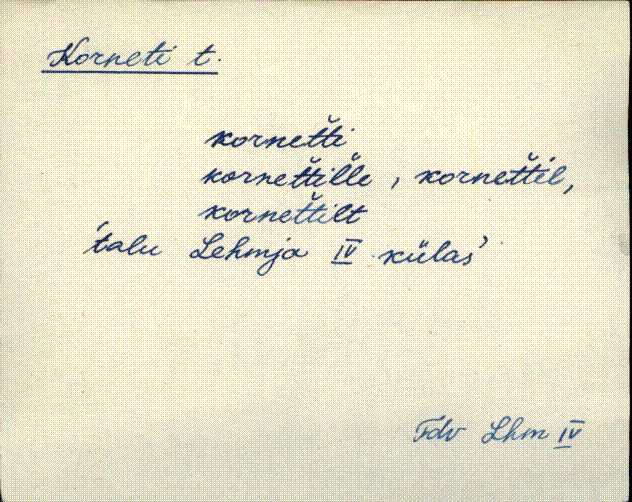 Korneti t.
kornet̆ti
kornet̆til̆le, kornet̆til,
kornet̆tilt
'talu Lehmja IV külas'
Lhm IV